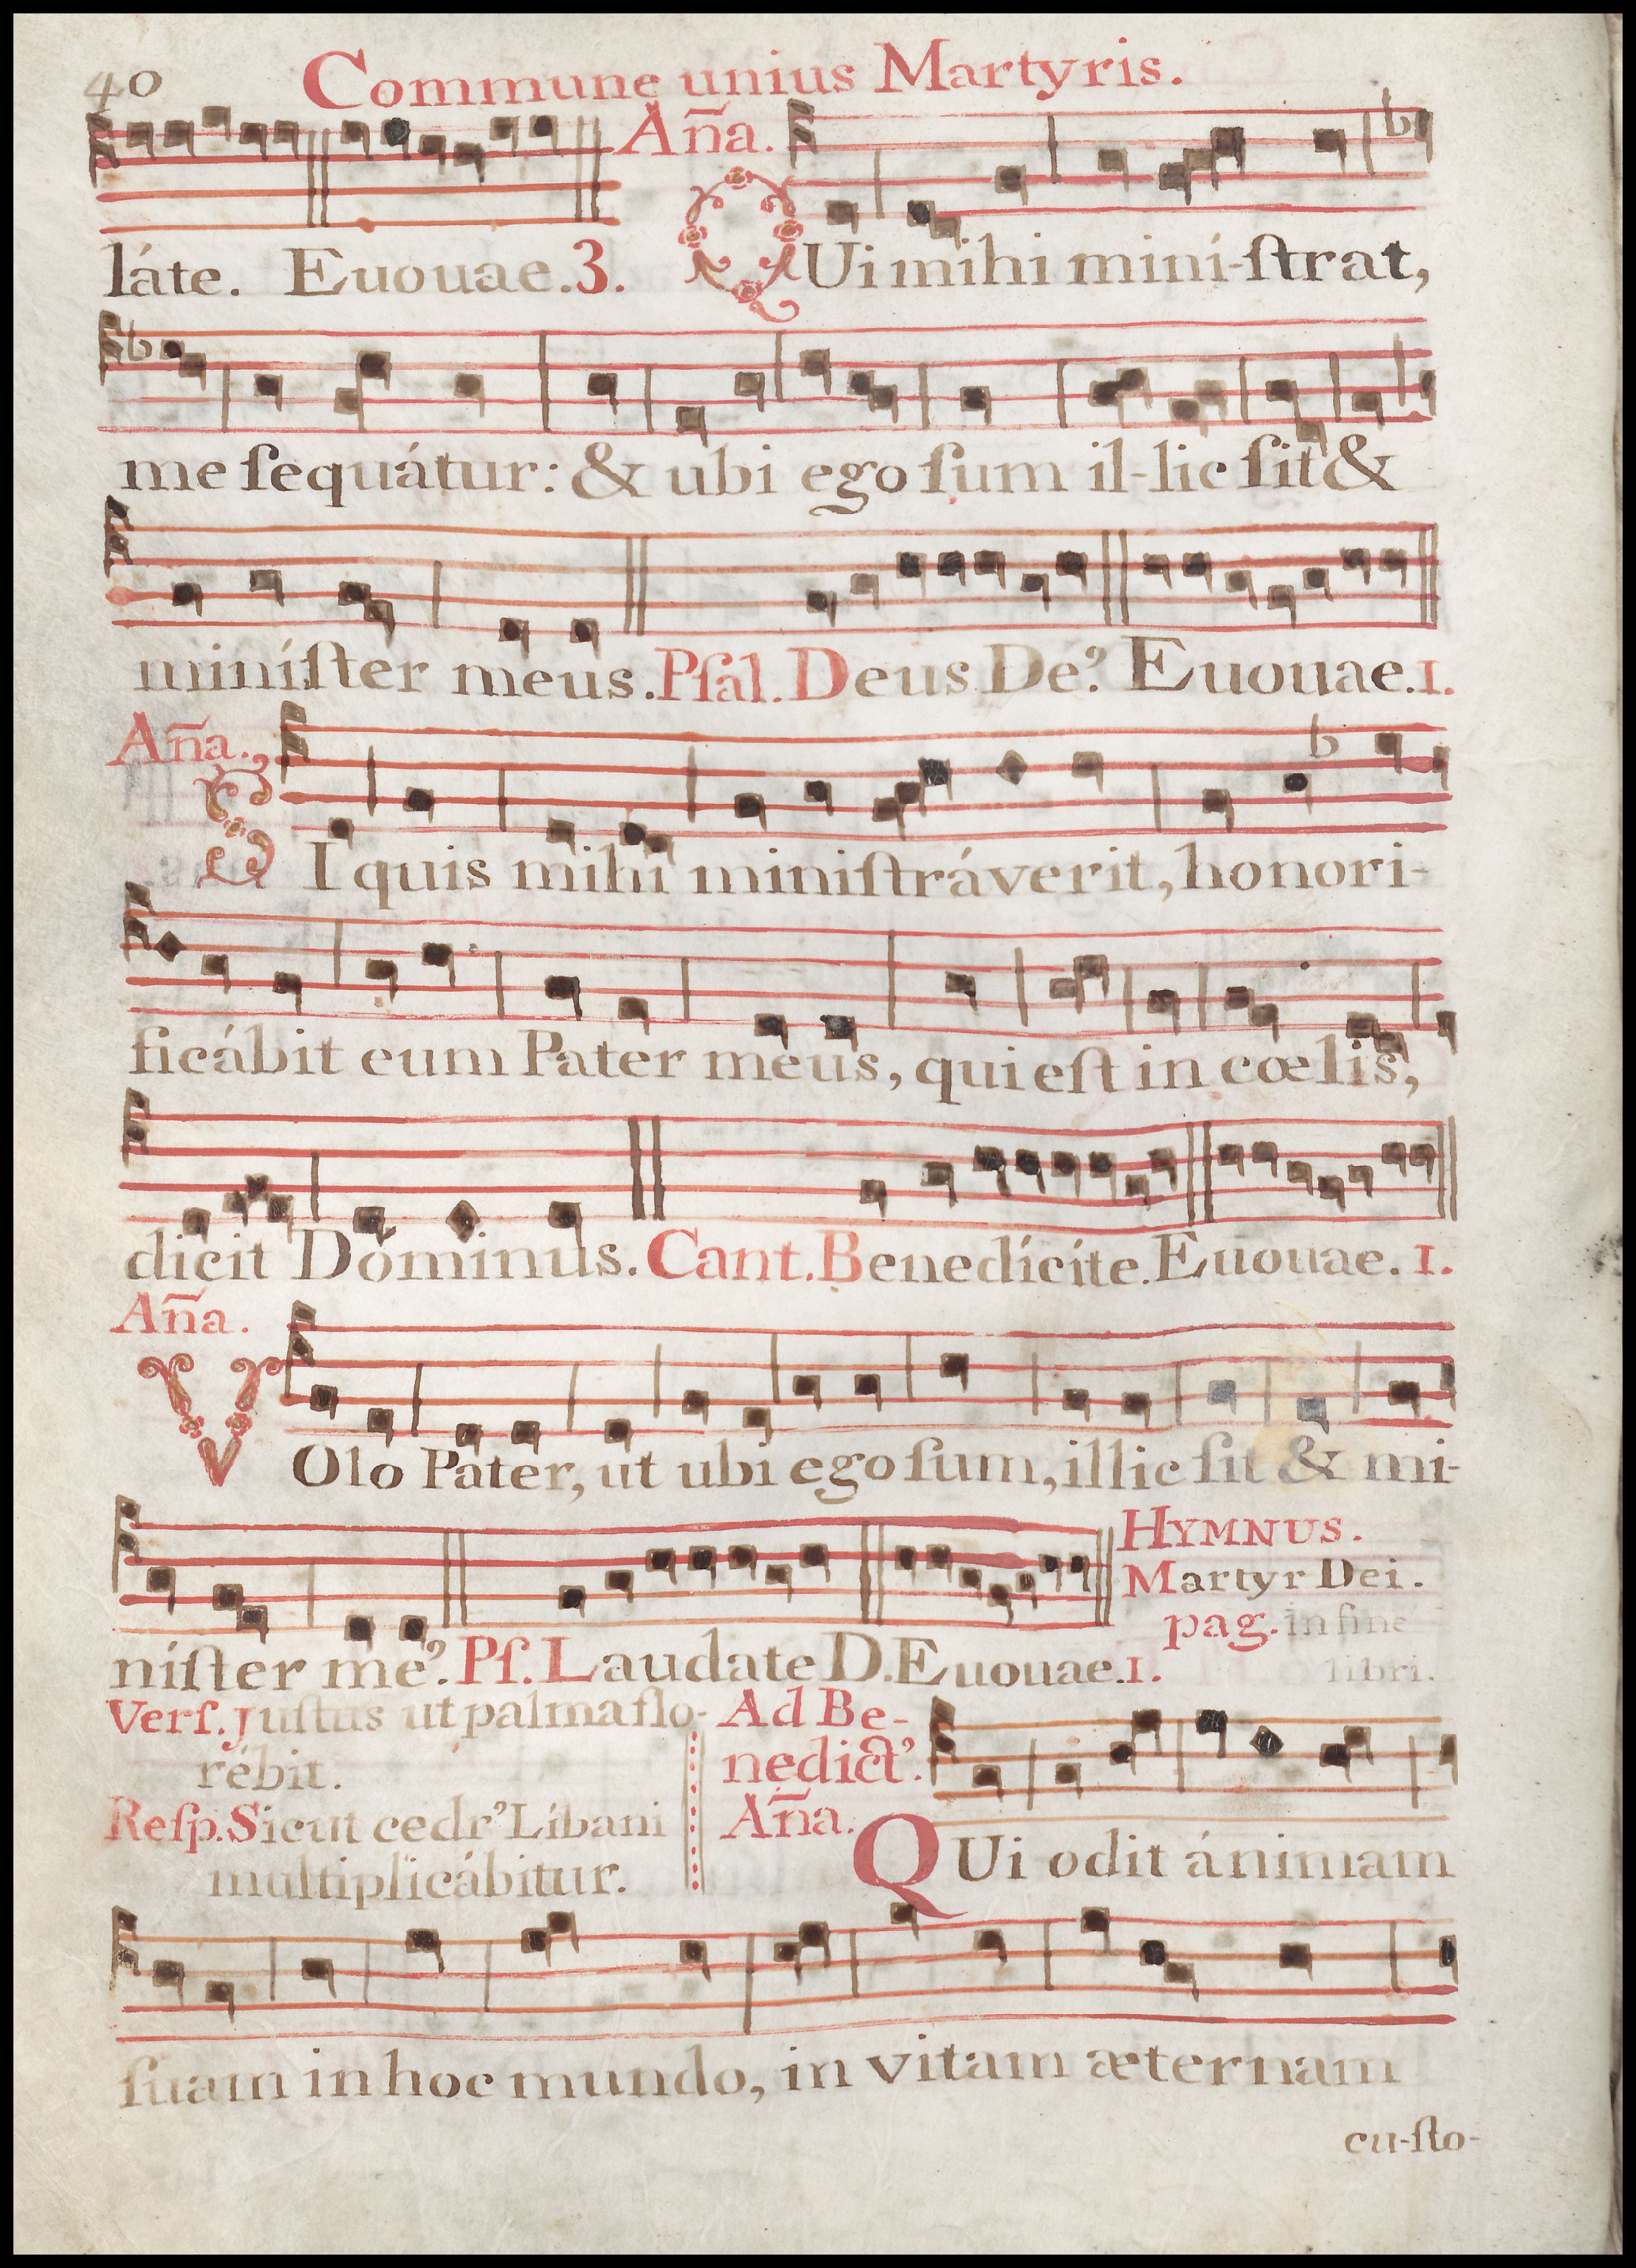 40 Commune unius Martyris.
Aña.
láte. Euouae. 3. QUi mihi mini-ſtrat,
me ſequátur: & ubi ego ſum il-lic ſit &
miníſter meus. Pſal. Deus De⁹. Euouae. 1.
Aña.
SI quis mihi miniſtráverit, honori-
ficábit eum Pater meus, qui eſt in cœlis,
dicit Dóminus. Cant. Benedícite. Euouae. 1.
Aña.
VOlo Pater, ut ubi ego ſum, illic ſit & mi-
HYMNUS.
Martyr Dei.
pag. in fine
libri.
niſter me⁹. Pſ. Laudate D. Euouae. 1.
Verſ. Juſtus ut palma flo-
rébit.
Reſp. Sicut cedr⁹ Líbani
multiplicábitur.
Ad Be-
nedict⁹.
Aña.
QUi odit ánimam
ſuam in hoc mundo, in vitam æternam
cu-ſto-